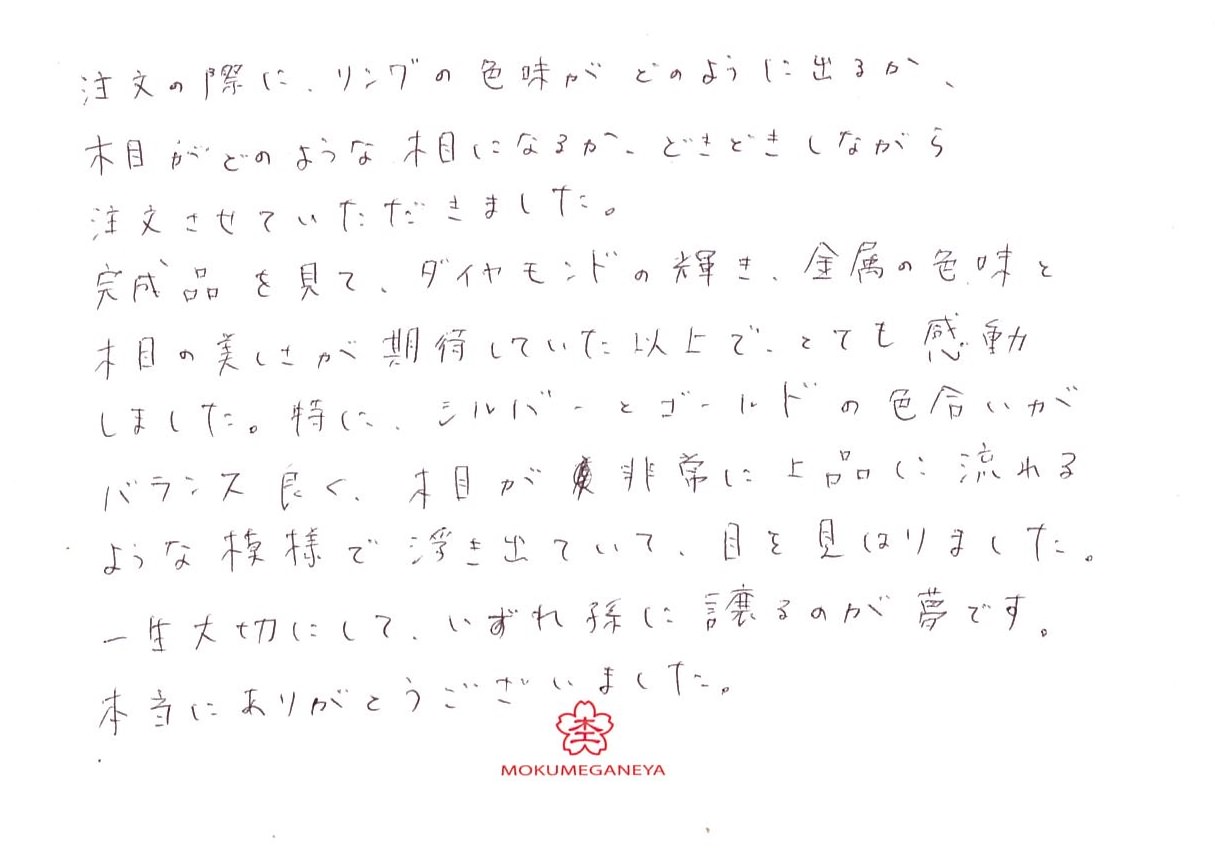 注文の際に、リングの色味がどのように出るか、
木目がどのような木目になるか、どきどきしながら
注文させていただきました。
完成品を見て、ダイヤモンドの輝き、金属の色味と
木目の美しさが期待していた以上で、とても感動
しました。特に、シルバーとゴールドの色合いが
バランス良く、木目が非常に上品に流れる
ような模様で浮き出ていて、目を見はりました。
一生大切にして、いずれ孫に譲るのが夢です。
本当にありがとうございました。
MOKUMEGANEYA